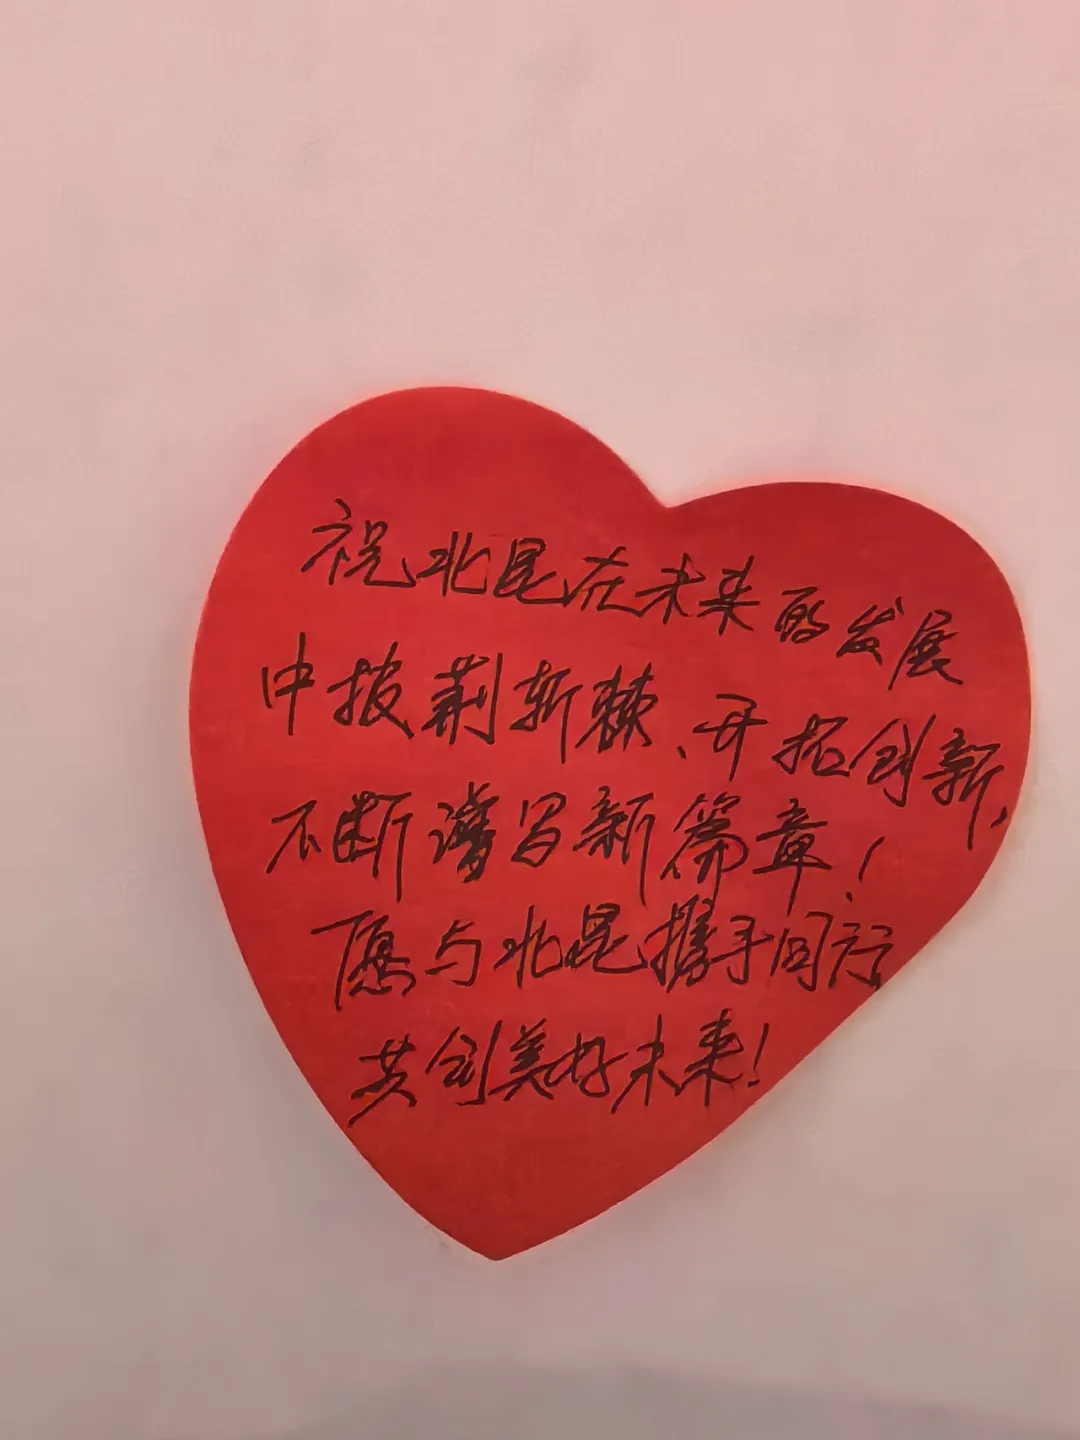 祝北昆在未来的发展
中披荆斩棘、开拓创新、
不断谱写新篇章！
愿与北昆携手同行
共创美好未来！